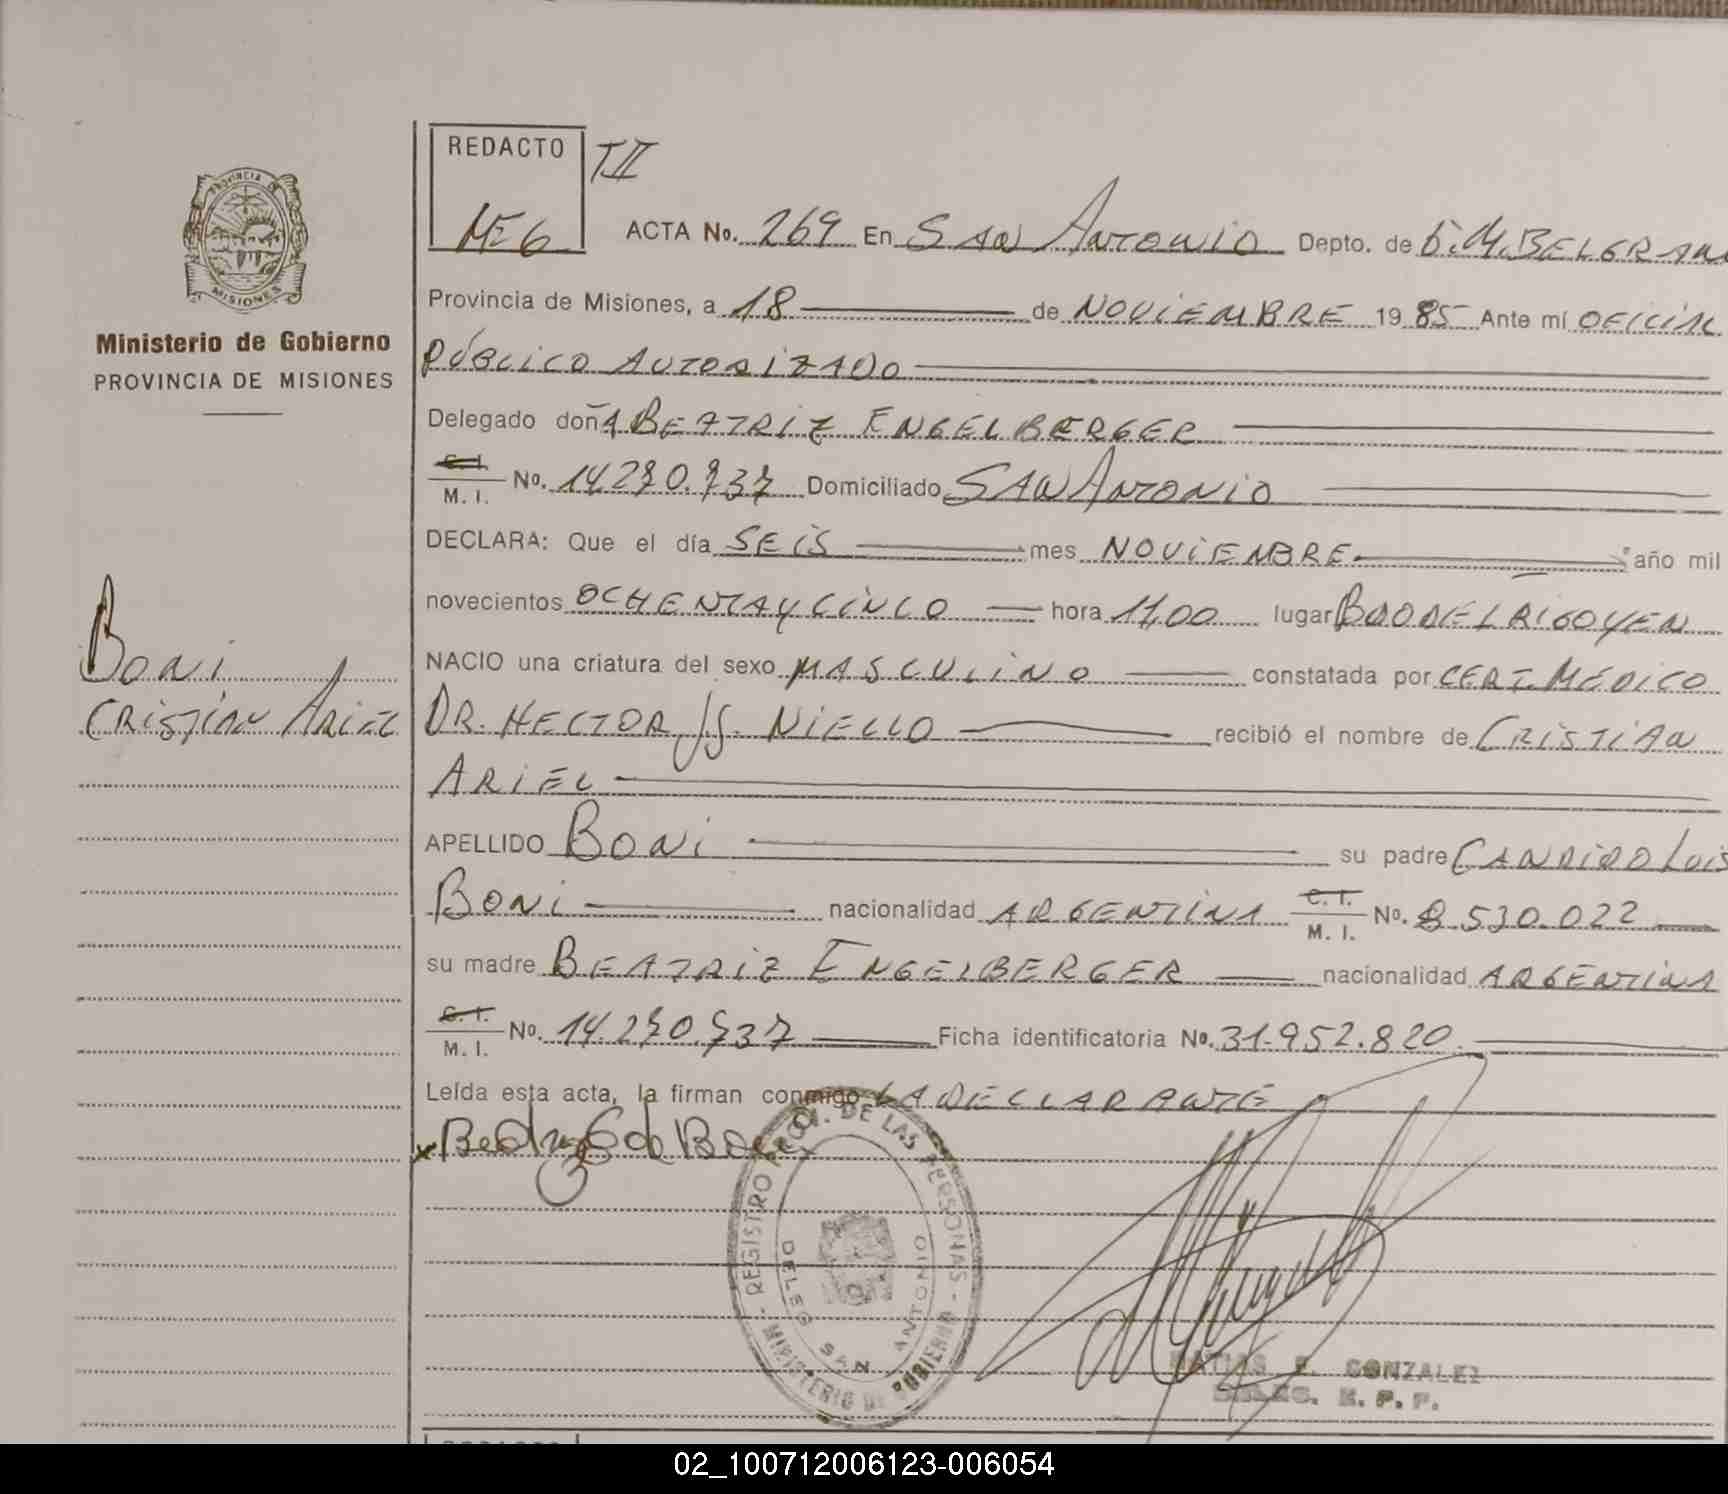 REDACTO TII
ME6
ACTA No. 269 En SAN ANTONIO Depto. de G.M.BELGRANO
PROVINCIA DE
MISIONES
Ministerio de Gobierno
PROVINCIA DE MISIONES
Provincia de Misiones, a 18 de NOVIEMBRE 1985 Ante mí OFICIAL
PÚBLICO AUTORIZADO
Delegado doña BEATRIZ ENGELBERGER
C. I.
M. I. No. 14.270.737 Domiciliado SAN ANTONIO
DECLARA: Que el día SEIS mes NOVIEMBRE año mil
novecientos OCHENTA Y CINCO hora 11,00 lugar BDO DE IRIGOYEN
NACIO una criatura del sexo MASCULINO constatada por CERT. MÉDICO
BONI
CRISTIAN ARIEL
DR. HECTOR JS. NIELLO recibió el nombre de CRISTIAN
ARIEL
APELLIDO BONI su padre CANDIDO LUIS
BONI nacionalidad ARGENTINA C. I. M. I. No. 8.530.022
su madre BEATRIZ ENGELBERGER nacionalidad ARGENTINA
C. I.
M. I. No. 14.270.737 Ficha identificatoria No. 31.952.820.
Leída esta acta, la firman conmigo LA DECLARANTE
x Beatriz E de Boni
REGISTRO PROV. DE LAS PERSONAS - MINISTERIO DE GOBIERNO
DELEG SAN ANTONIO
MATIAS E. GONZALEZ
02_100712006123-006054